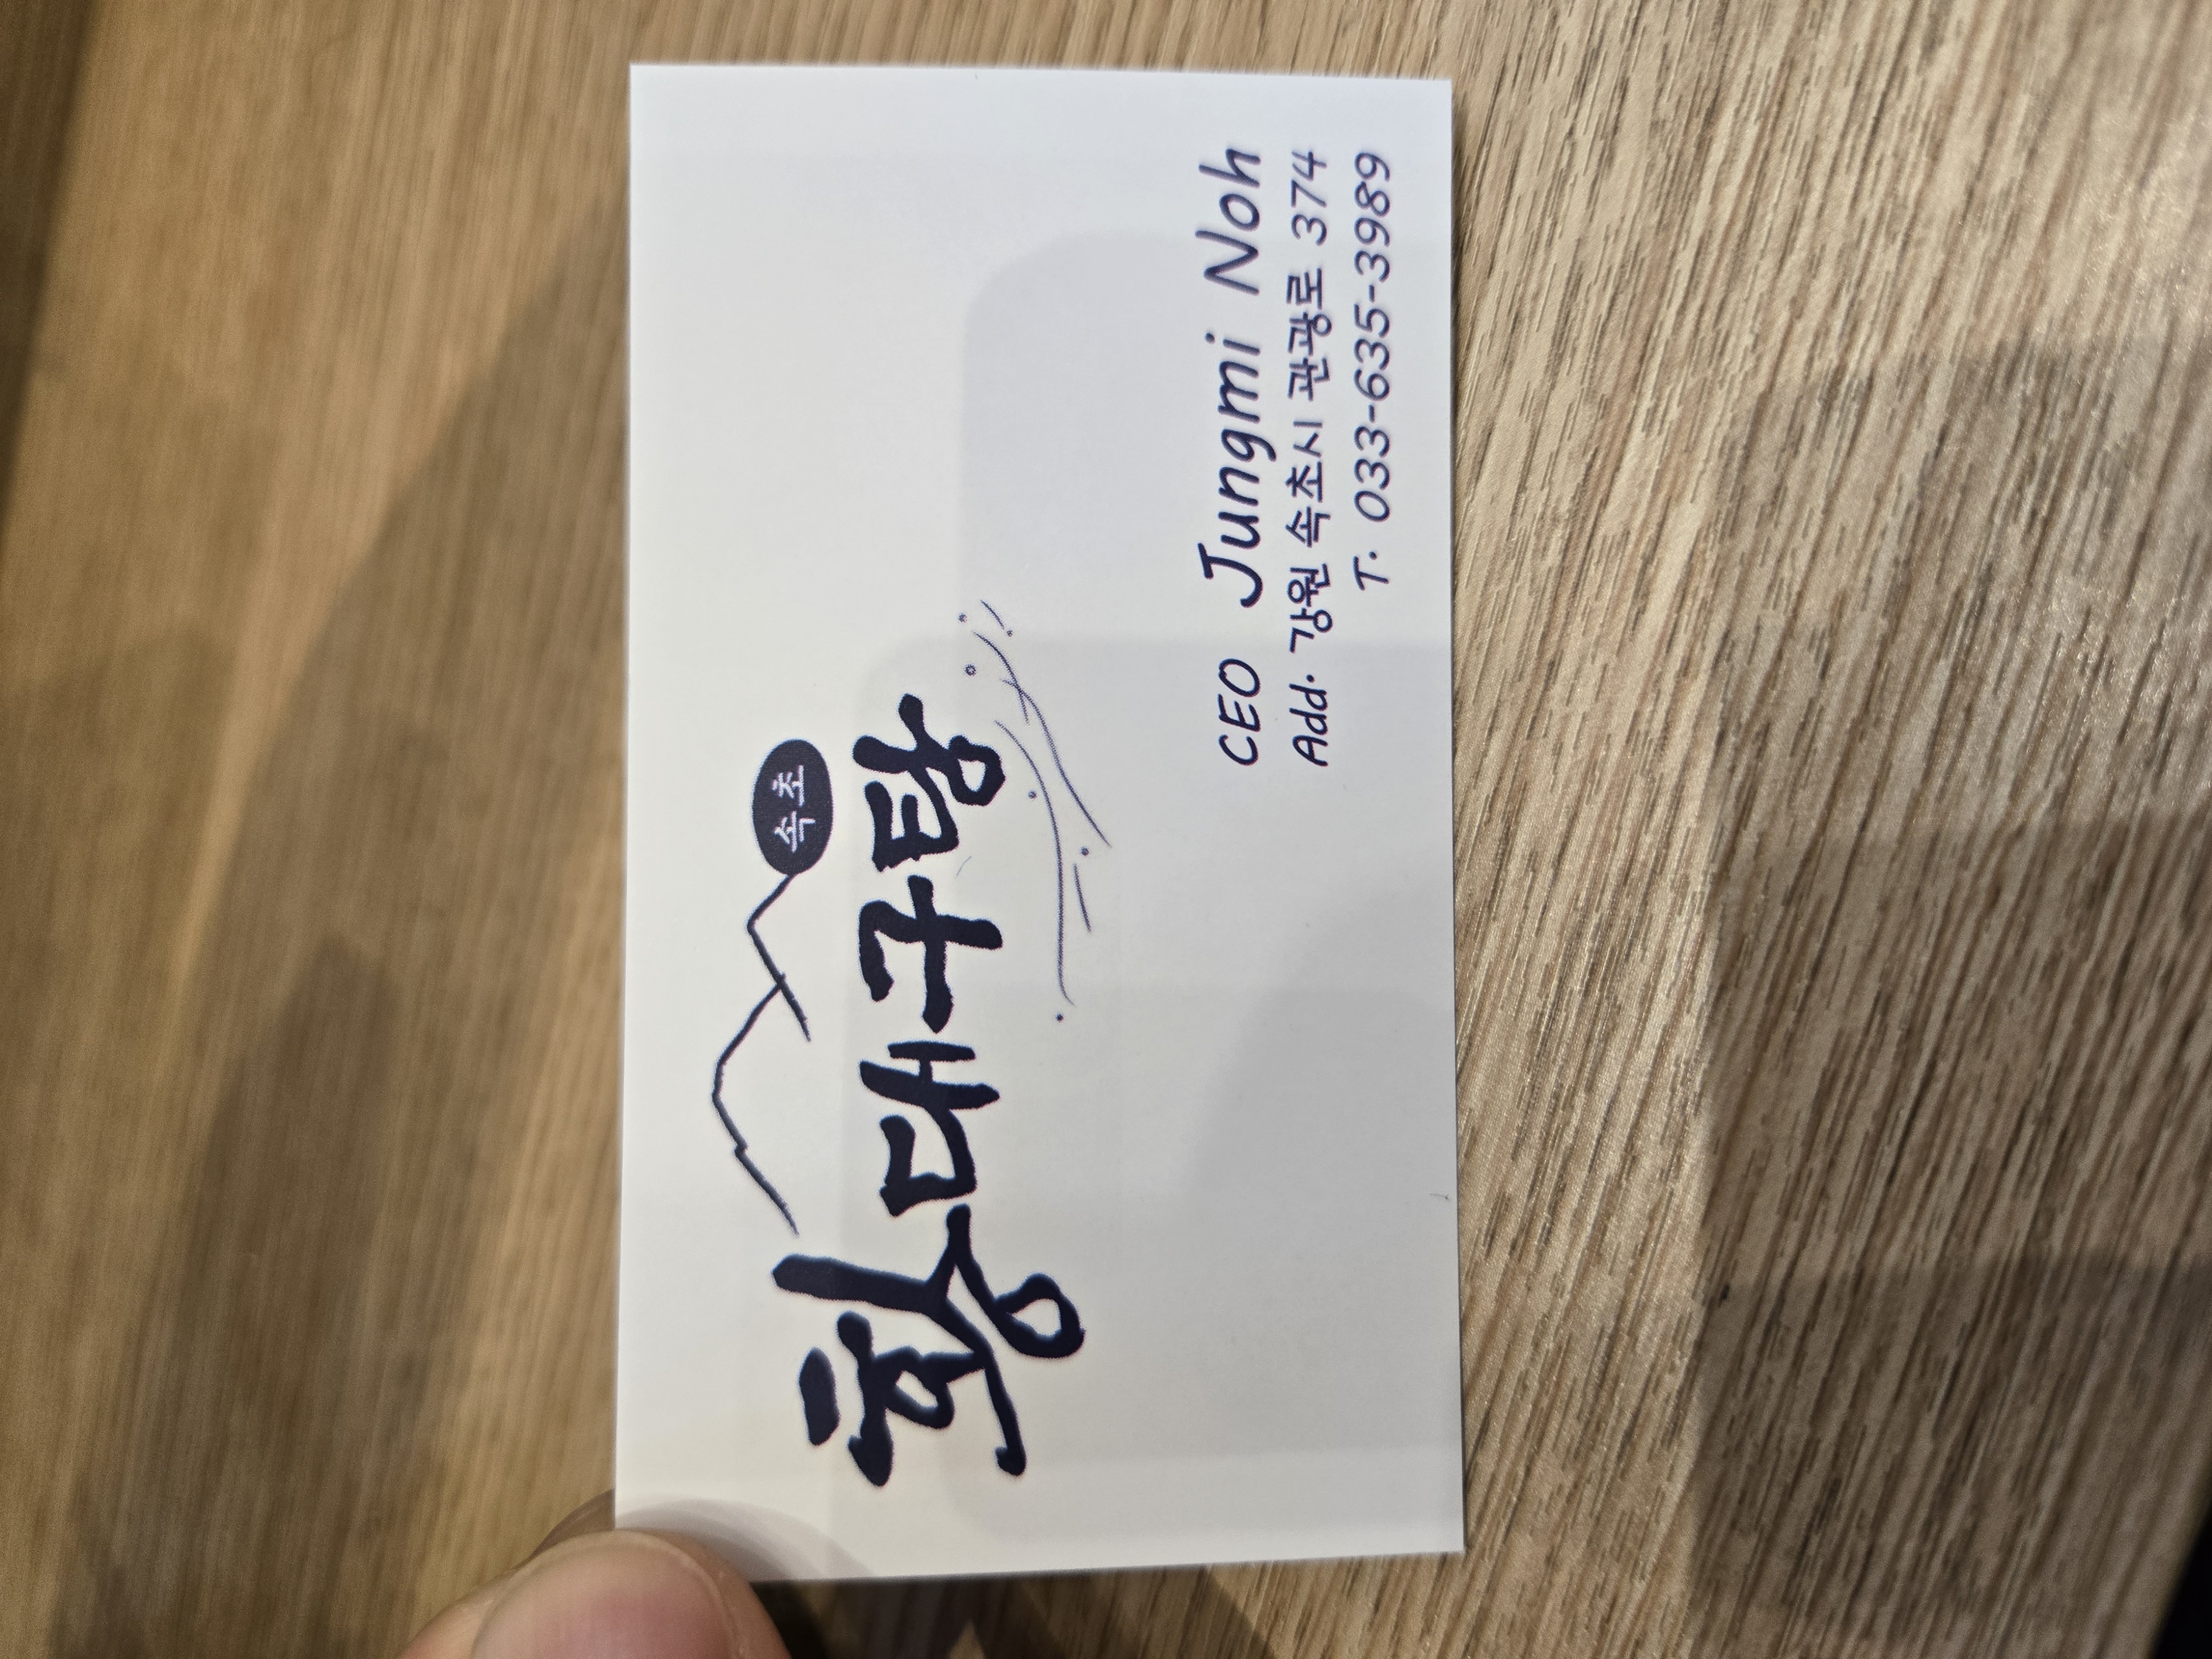 속초
황대구탕
CEO Jungmi Noh
Add. 강원 속초시 관광로 374
T. 033-635-3989